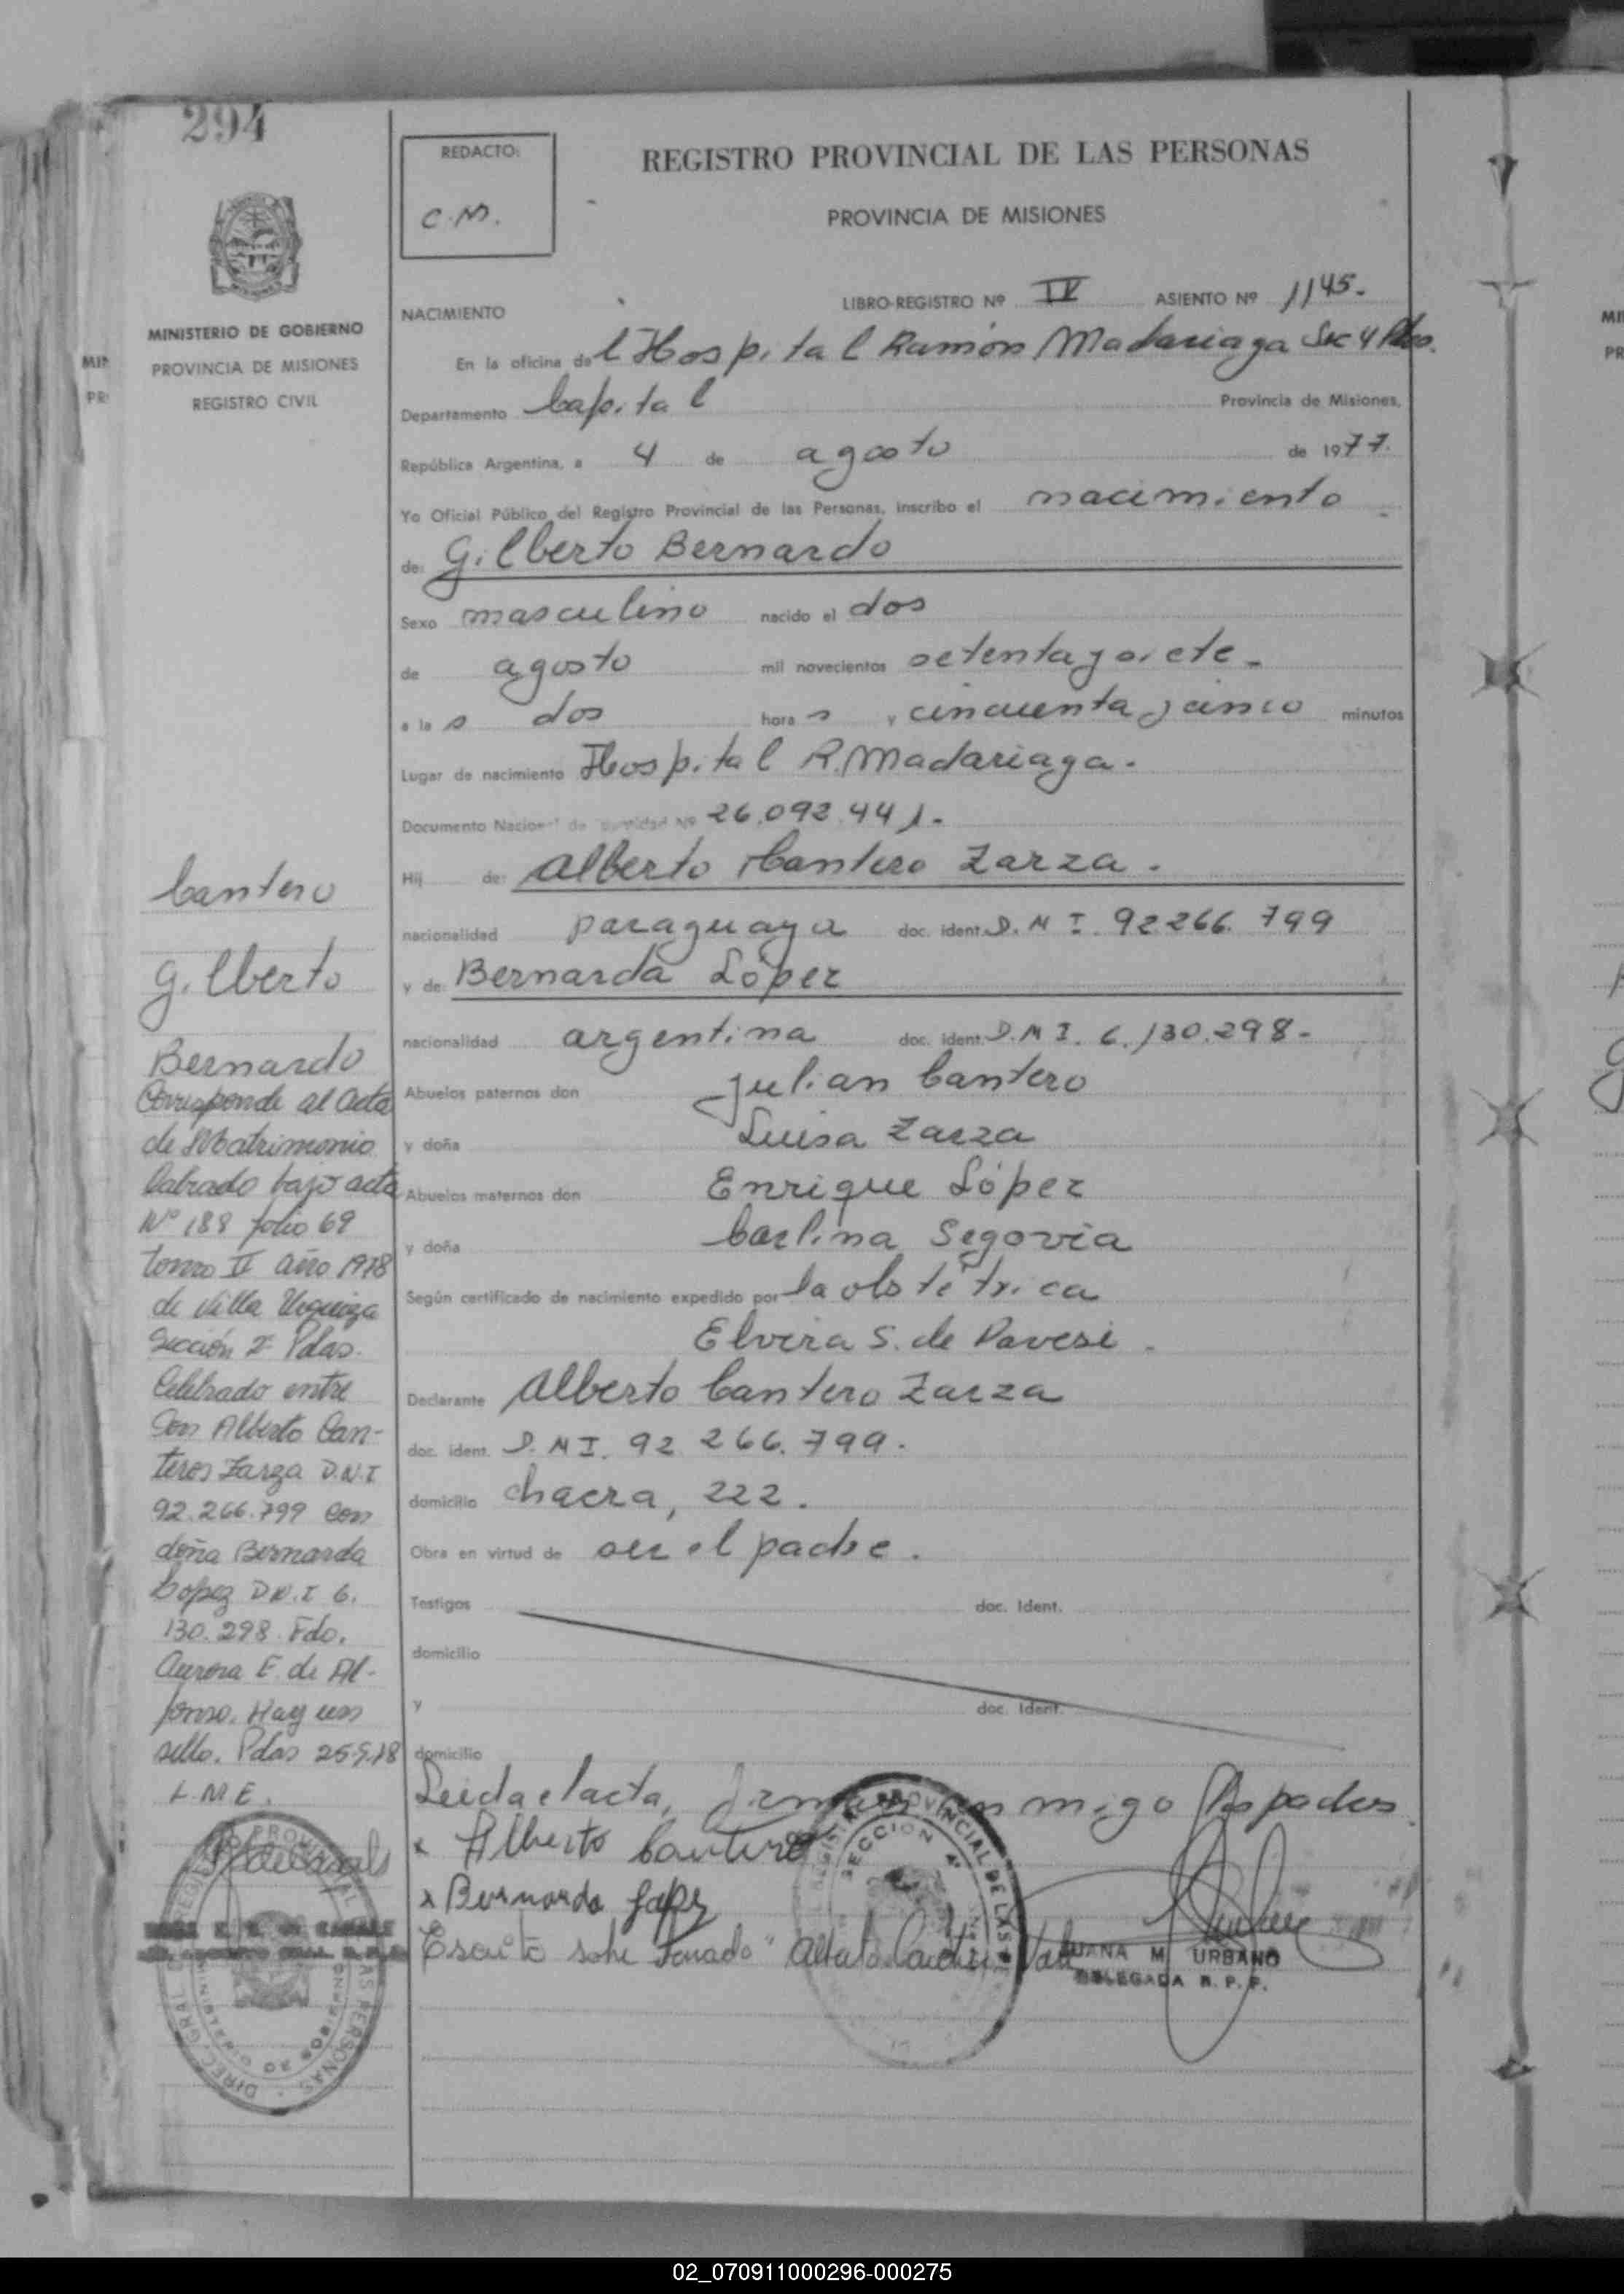 294
MINISTERIO DE GOBIERNO
PROVINCIA DE MISIONES
REGISTRO CIVIL
REDACTO:
C.M.
REGISTRO PROVINCIAL DE LAS PERSONAS
PROVINCIA DE MISIONES
NACIMIENTO
LIBRO-REGISTRO Nº IV ASIENTO Nº 1145.-
En la oficina del Hospital Ramón Madariaga Sec 4 Pdas.
Departamento Capital Provincia de Misiones,
República Argentina, a 4 de agosto de 1977.
Yo Oficial Público del Registro Provincial de las Personas, inscribo el nacimiento
de: Gilberto Bernardo
Sexo masculino nacido el dos
de agosto mil novecientos setenta y siete.-
a las dos horas y cincuenta y cinco minutos
Lugar de nacimiento Hospital R. Madariaga.
Documento Nacional de Identidad Nº 26.092.441.-
Hij de: Alberto Cantero Zarza.
nacionalidad paraguaya doc. ident. D.N I. 92 266. 799
y de: Bernarda López
nacionalidad argentina doc. ident. D.N I. 6.130.298-
Abuelos paternos don Julian Cantero
y doña Luisa Zarza
Abuelos maternos don Enrique López
y doña Carlina Segovia
Según certificado de nacimiento expedido por la obstétrica
Elvira S. de Pavesi.
Declarante Alberto Cantero Zarza
doc. ident. D.N I. 92 266. 799.
domicilio chacra, 222.
Obra en virtud de ser el padre.
Testigos doc. Ident.
domicilio
y doc. Ident.
domicilio
Leida el acta, firman conmigo los padres
x Alberto Cantero
x Bernarda Lopez
Escrito sobre borrado "Alberto Cantero" Vale
JUANA M URBANO
DELEGADA R. P. P.
REGISTRO PROVINCIAL DE LAS
SECCION 4ª
Cantero
Gilberto
Bernardo
Corresponde al acta
de Matrimonio
labrado bajo acta
Nº 188 folio 69
tomo II año 1978
de Villa Urquiza
Sección 2ª Pdas.
Celebrado entre
Don Alberto Can-
teros Zarza D.N.I
92.266.799 con
doña Bernarda
Lopez D.N.I 6.
130.298 Fdo.
Aurora E. de Al-
fonso. Hay un
sello. Pdas 25-9-78
L.M.E.
DIREC. GRAL. REGISTRO PROVINCIAL LAS PERSONAS
02_070911000296-000275